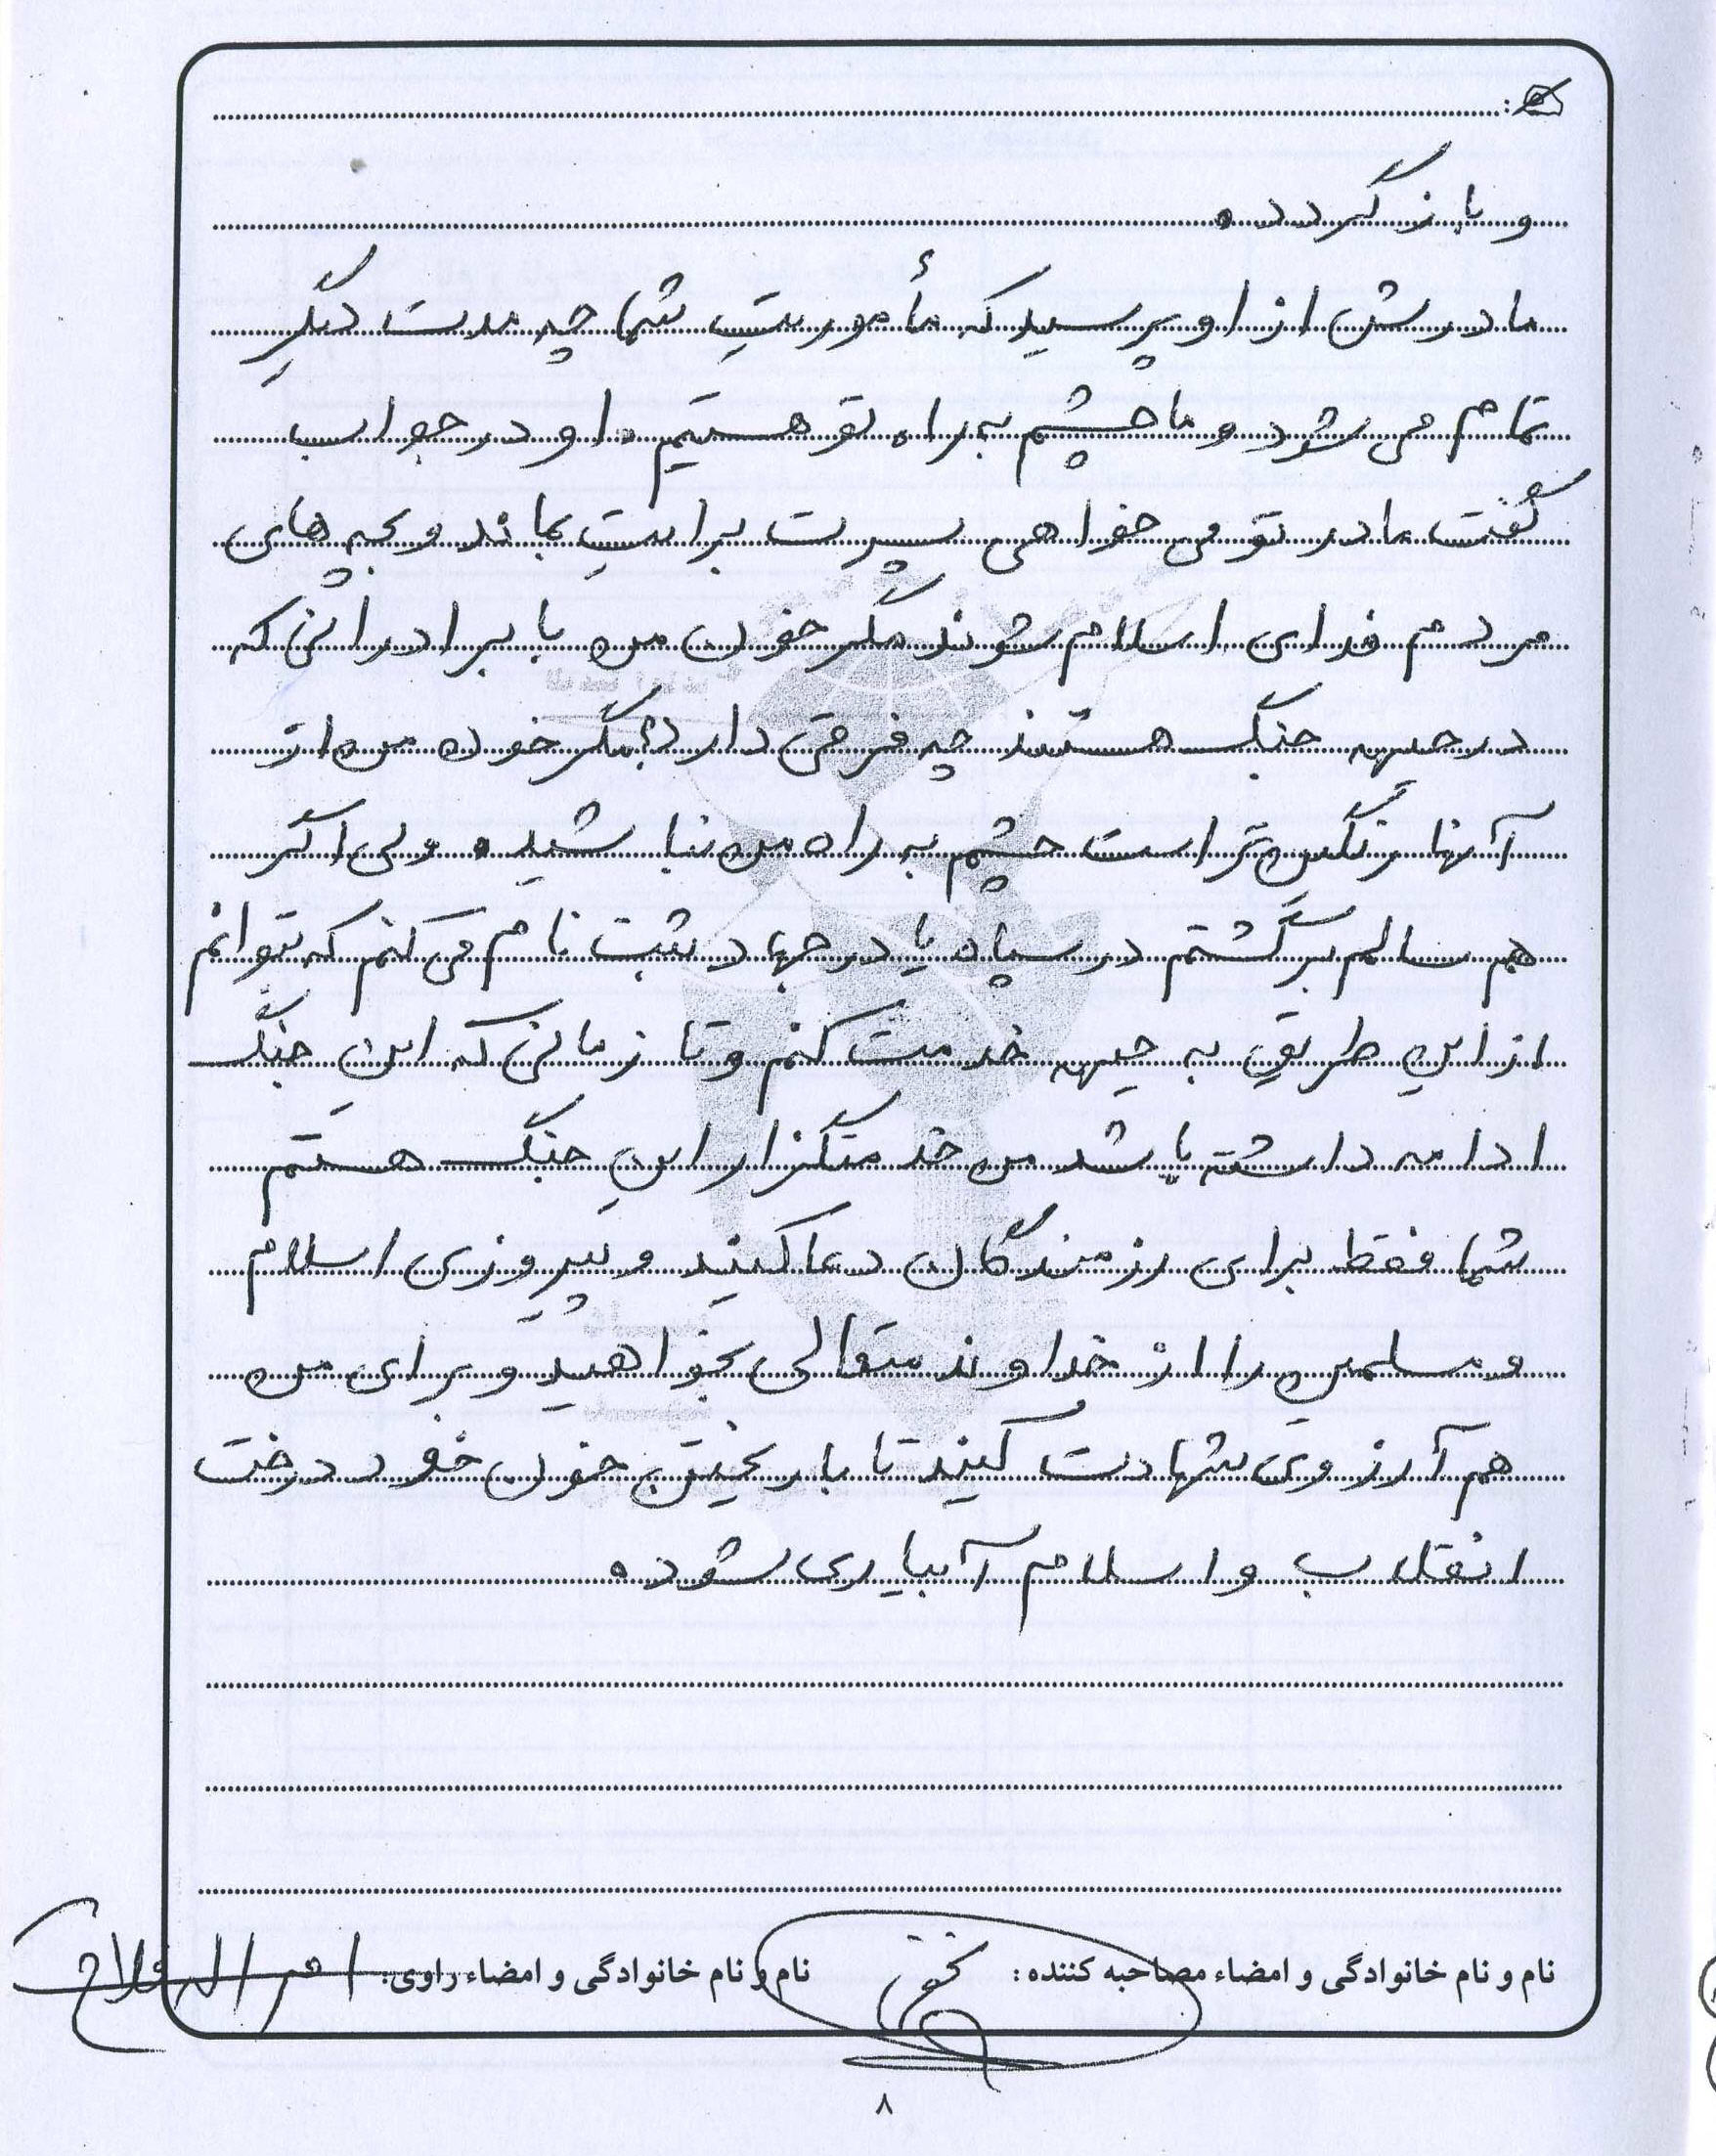 و باز گردد.
مادرش از او پرسید که مأموریت شما چه مدت دیگر
تمام می شود و ما چشم به راه تو هستیم. او در جواب
گفت مادر تو می خواهی پسرت برایت بماند و بچه های
مردم فدای اسلام شوند مگر خون من با برادرانی که
در جبهه جنگ هستند چه فرقی دارد؟ مگر خون من از
آنها رنگین تر است چشم به راه من نباشید. ولی اگر
هم سالم برگشتم در سپاه یا در جهاد ثبت نام می کنم که بتوانم
از این طریق به جبهه خدمت کنم و تا زمانی که این جنگ
ادامه داشته باشد من خدمتگزار این جنگ هستم
شما فقط برای رزمندگان دعا کنید و پیروزی اسلام
و مسلمین را از خداوند متعالی بخواهید و برای من
هم آرزوی شهادت کنید تا با ریختن خون خود درخت
انقلاب و اسلام آبیاری شود.
نام و نام خانوادگی و امضاء مصاحبه کننده: نام و نام خانوادگی و امضاء راوی:
۸